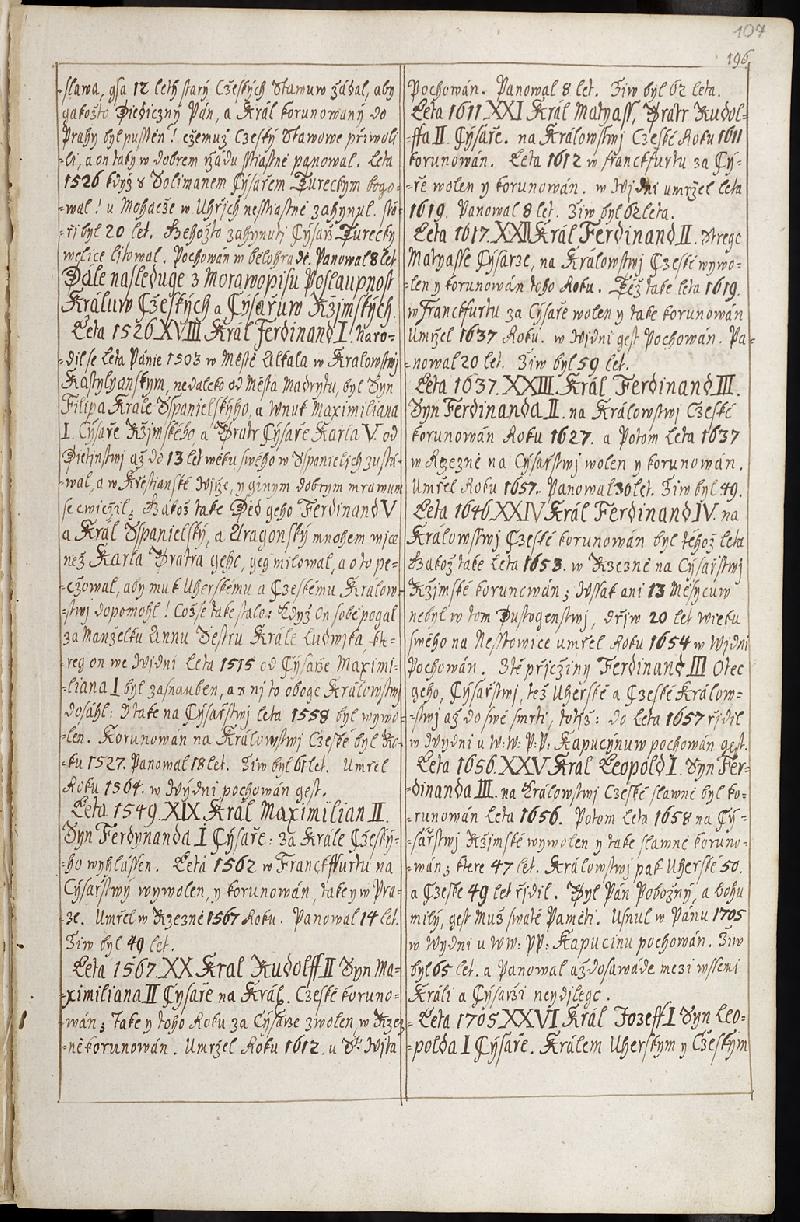 107
196
slawa, gsa 12 letý starý Cžeských Stawuw žádal, aby
gakožto Diediczný Pán, a Král korunowaný do
Prahy byl pusstěn! cžemuž Czeský Stawowe přiwoli-
li, a on taky w dobrem řádu sstiastně panowal. Leta
1526 když s Solimanem Cýsařem Tureckym bogo-
wal! u Mohacže w Uhřich nesstiastně zahynul. Sta-
ři byl 20 let. Kehožto zahynuti Cýsarž Turecký
welice litowal. Pochowán w belohradě. Panowal 8 let
Dále nasleduge z Morawopisu Posłaupnost
Králuw Cžeských a Cýsařuw Ržjmských.
Léta 1526 XVIII Král Ferdinand I. Naro-
dil se Léta Pánie 1503 w Městě Alkala w Kralowstwj
Kastylyanskym, nedaleko od Města Madrytu, byl Syn
Filipa Krale Spanielskýho, a wnuk Maximiliana
I. Cýsaře Ržjmského a Bratr Cýsaře Karla V. od
Dietinstwj až do 13 let wěku swého w Spanielých zusta-
wal, a w Křestianské Wjře, y giným dobrým mrawum
se cwicžil. Kakož take Děd geho Ferdinand V
a Král Spanielský, a Aragonský mnohem wjce
než Karla Bratra geho, geg milowal, a o to pe-
cžowal, aby muk Uherskému a Czeskému Kralow-
stwj dopomohl! Což se také stalo: Když on sobě pogal
za Manželku Annu Sestru Krále Ludwjka, kte-
reg on we Wjdni Leta 1515 od Cýsaře Maximi-
liana I byl zasnauben, a z nj to oboge Králowstwj
dosáhl: Itake na Cýsařstwj leta 1558 byl wywo-
len. Korunowán na Králowstwj Czeské byl Ro-
ku 1527. Panowal 18 let. Žiw byl 61 let. Umřel
Roku 1564. w Wýdni pochowán gest.
Léta 1549. XIX. Král Maximilian II.
Syn Ferdynanda I Cýsaře: za Krále Cžeský-
ho wyhlássen. Leta 1562 w Franckffurtu na
Cýsařstwý wywolen, y korunowán, taky w Pra-
ze. Umřel w Rzezně 1567 Roku. Panowal 14 let.
Žiw byl 49 let.
Léta 1567. XX Král Rudolff II Syn Ma-
ximiliana II Cýsaře na Král. Czeské koruno-
wán; take y toho Roku za Cýsarže zwolen w Rzez-
ně korunowán. Umržel Roku 1612. u S. Wjta
Pochowán. Panowal 8 let. Žiw byl 62 leta.
Léta 1611 XXI Král Matyass, Bratr Rudol-
ffa II. Cýsaře. na Králowstwj Czeské Roku 1611
korunowán. Leta 1612 w franckfurtu za Cý-
ře wolen y korunowán. w Wjdni umržel leta
1619. Panowal 8 let. Žiw byl 62 leta.
Léta 1617. XXII Král Ferdinand II. Stregc
Matyasse Cýsarže, na Králowstwj Czeské wywo-
len y korunowán toho Roku. Též také leta 1619.
w Franckfurtu za Cýsaře wolen y take korunowán
Umržel 1637 Roku. w Wjdni gest Pochowán. Pa-
nowal 20 let. Žiw byl 59 let.
Léta 1637. XXIII. Král Ferdinand III.
Syn Ferdinanda II. na Králowstwj Czeské
korunowán Roku 1627. a Potom Leta 1637
w Rzezně na Cýsařstwj wolen y korunowán.
Umřel Roku 1657. Panowal 30 let. Žiw byl 49.
Léta 1646 XXIV Král Ferdinand IV. na
Králowstwj Czeské korunowán byl tehož leta
Kakož také leta 1653. w Rzezně na Cýsařstwj
Ržjmské korunowán; Wssak ani 13 Měsýcuw
nebyl w tom Dustogenstwj, dřjw 20 let wieku
swého na Nesstowice umřel Roku 1654 w Wjdni
Pochowán. Z té přjcžiny Ferdinand III Otec
geho, Cýsařstwj, též Uherské a Czeské Králow-
stwj až do swé smrti, totiž: do leta 1657 řjdil
w Wydni u W: W: P: P: Kapucynuw pochowán gest.
Léta 1656. XXV. Král Leopold I. Syn Fer-
dinanda III. na Kralowstwj Czeské slawně byl ko-
runowán Leta 1656. Potom leta 1658 na Cý-
sařstwj Ržjmské wywolen y take slawně koruno-
wán; ktere 47 let. Králowstwj pak Uherské 50.
a Czeské 49 let řjdil. Byl Pán Pobožný, a bohu
milý, gest Muž swaté Paměti. Usnul w Pánu 1705
w Wydni u WW: PP: Kapucinu pochowán. Žiw
byl 65 let. a Panowal až dosawáde mezi wssemi
Králi a Cýsarži neydjlegc.
Léta 1705 XXVI Král Jozeff I Syn Leo-
polda I Cýsaře. Králem Uherským y Czeským